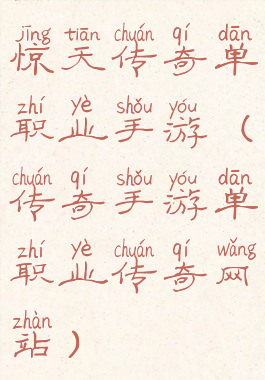 jīng tiān chuán qí dān
惊天传奇单
zhí yè shǒu yóu
职业手游（
chuán qí shǒu yóu dān
传奇手游单
zhí yè chuán qí wǎng
职业传奇网
zhàn
站）